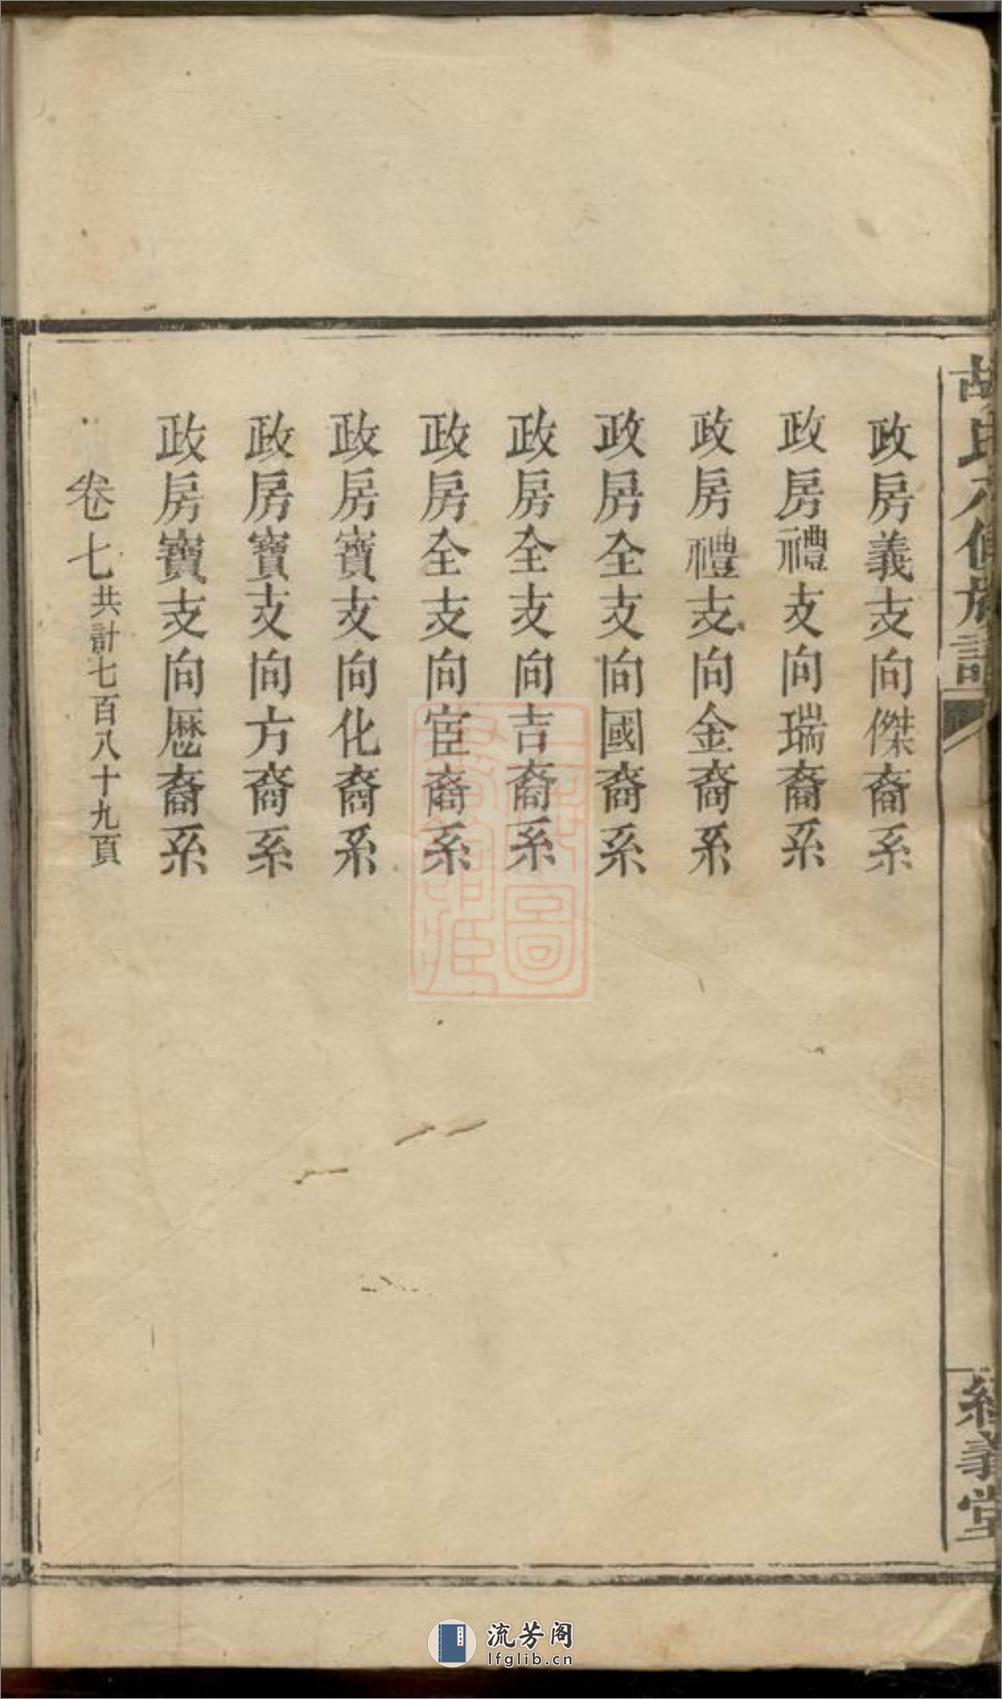 胡氏六修族譜
經義堂
政房義支向傑裔系
政房禮支向瑞裔系
政房禮支向金裔系
政房全支向國裔系
政房全支向吉裔系
政房全支向宦裔系
政房寶支向化裔系
政房寶支向方裔系
政房寶支向歷裔系
卷七共計七百八十九頁
流芳阁
lfglib.cn